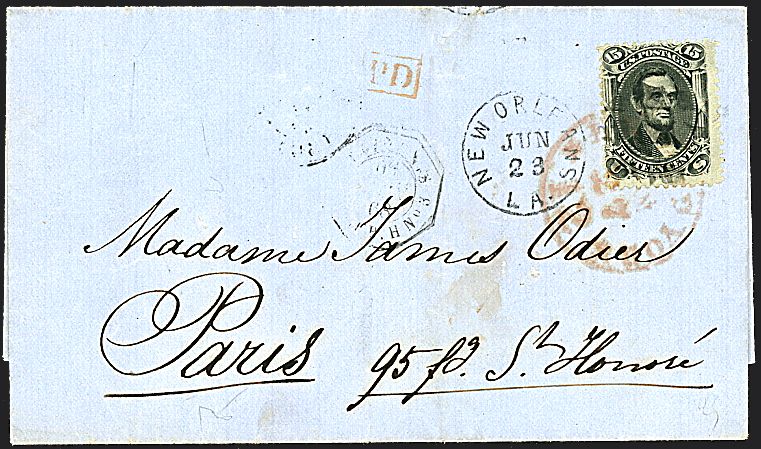 PD
15 U.S. POSTAGE. 15
FIFTEEN CENTS
U S
NEW ORLEANS
JUN
23
LA.
Madame James Odier
Paris 95 fg. St. Honoré